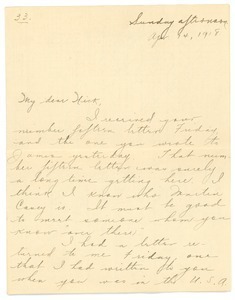 33
Sunday afternoon
Apr. 14, 1918
My dear
I received your
number fifteen letter Friday
and the one you wrote to
yesterday. That num-
ber fifteen letter was surely
a long time getting here. I
think I know who
Casey is. It must be good
to meet someone whom you
know "over there".
I had a letter re-
turned to me Friday, one
that I had written to you
when you was in the U.S.A.